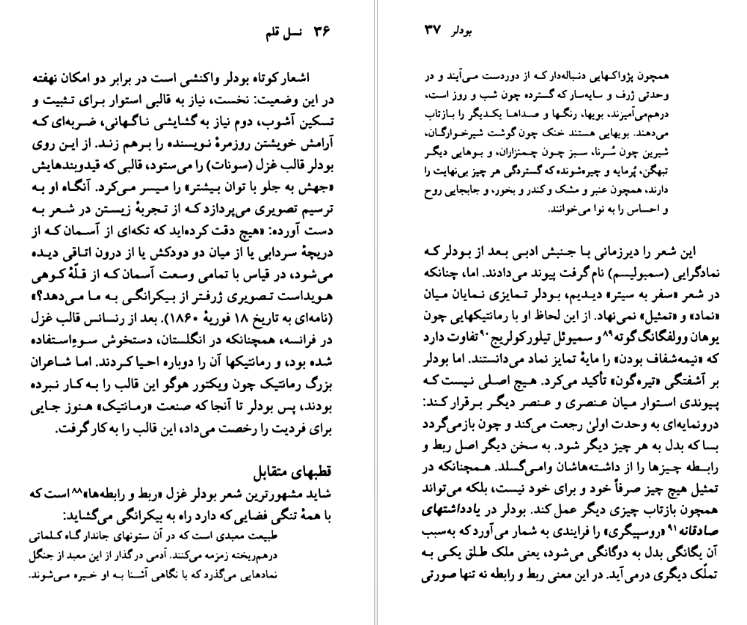 ۳۷ بودلر
همچون پژواکهایی دنباله‌دار که از دوردست می‌آیند و در
وحدتی ژرف و سایه‌سار که گسترده چون شب و روز است،
درهم‌می‌آمیزند، بویها، رنگها و صداها یکدیگر را بازتاب
می‌دهند. بویهایی هستند خنک چون گوشت شیرخوارگان،
شیرین چون سُرنا، سبز چون چمنزاران، و بوهایی دیگر
تبهگن، پُرمایه و چیره‌شونده که گستردگی هر چیز بی‌نهایت را
دارند، همچون عنبر و مشک و کندر و بخور، و جابجایی روح
و احساس را به نوا می‌خوانند.
این شعر را دیرزمانی با جنبش ادبی بعد از بودلر که
نمادگرایی (سمبولیسم) نام گرفت پیوند می‌دادند. اما، چنانکه
در شعر «سفر به سیتر» دیدیم، بودلر تمایزی نمایان میان
«نماد» و «تمثیل» نمی‌نهاد. از این لحاظ او با رمانتیکهایی چون
یوهان وولفگانگ گوته۸۹ و سمیوئل تیلور کولریج۹۰ تفاوت دارد
که «نیمه‌شفاف بودن» را مایهٔ تمایز نماد می‌دانستند. اما بودلر
بر آشفتگی «تیره‌گون» تأکید می‌کرد. هیچ اصلی نیست که
پیوندی استوار میان عنصری و عنصر دیگر برقرار کند:
درونمایه‌ای به وحدت اولیٰ رجعت می‌کند و چون بازمی‌گردد
بسا که بدل به هر چیز دیگر شود. به سخن دیگر اصل ربط و
رابطه چیزها را از داشته‌هاشان وامی‌گسلد. همچنانکه در
تمثیل هیچ چیز صرفاً خود و برای خود نیست، بلکه می‌تواند
همچون بازتاب چیزی دیگر عمل کند. بودلر در یادداشتهای
صادقانه۹۱ «روسپیگری» را فرایندی به شمار می‌آورد که به‌سبب
آن یگانگی بدل به دوگانگی می‌شود، یعنی ملک طلق یکی به
تملّک دیگری درمی‌آید. در این معنی ربط و رابطه نه تنها صورتی
۳۶ نسل قلم
اشعار کوتاه بودلر واکنشی است در برابر دو امکان نهفته
در این وضعیت: نخست، نیاز به قالبی استوار برای تثبیت و
تسکین آشوب، دوم نیاز به گشایشی ناگهانی، ضربه‌ای که
آرامش خویشتن روزمرهٔ نویسنده را برهم زند. از این روی
بودلر قالب غزل (سونات) را می‌ستود، قالبی که قیدوبندهایش
«جهش به جلو با توان بیشتر» را میسر می‌کرد. آنگاه او به
ترسیم تصویری می‌پردازد که از تجربهٔ زیستن در شعر به
دست آورده: «هیچ دقت کرده‌اید که تکه‌ای از آسمان که از
دریچهٔ سردابی یا از میان دو دودکش یا از درون اتاقی دیده
می‌شود، در قیاس با تمامی وسعت آسمان که از قلّهٔ کوهی
هویداست تصویری ژرفتر از بیکرانگی به ما می‌دهد؟»
(نامه‌ای به تاریخ ۱۸ فوریهٔ ۱۸۶۰). بعد از رنسانس قالب غزل
در فرانسه، همچنانکه در انگلستان، دستخوش سوءاستفاده
شده بود، و رمانتیکها آن را دوباره احیا کردند. اما شاعران
بزرگ رمانتیک چون ویکتور هوگو این قالب را به کار نبرده
بودند، پس بودلر تا آنجا که صنعت «رمانتیک» هنوز جایی
برای فردیت را رخصت می‌داد، این قالب را به کار گرفت.
قطبهای متقابل
شاید مشهورترین شعر بودلر غزل «ربط و رابطه‌ها»۸۸ است که
با همهٔ تنگی فضایی که دارد راه به بیکرانگی می‌گشاید:
طبیعت معبدی است که در آن ستونهای جاندار گاه کلماتی
درهم‌ریخته زمزمه می‌کنند. آدمی در گذار از این معبد از جنگل
نمادهایی می‌گذرد که با نگاهی آشنا به او خیره می‌شوند.